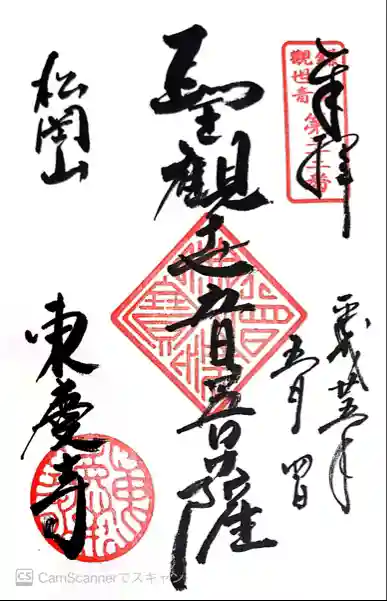 奉拝
鎌倉
觀世音
第三十三番
平成廿五年
五月四日
聖觀世音菩薩
松岡山
東慶寺
CamScannerでスキャン